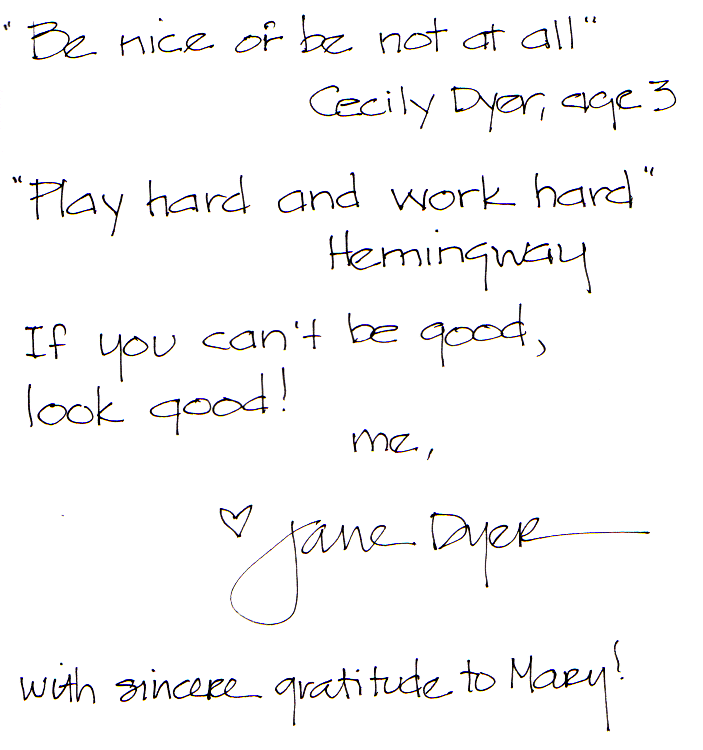 "Be nice or be not at all"
Cecily Dyer, age 3
"Play hard and work hard"
Hemingway
If you can't be good,
look good!
me,
♡ Jane Dyer
with sincere gratitude to Mary!